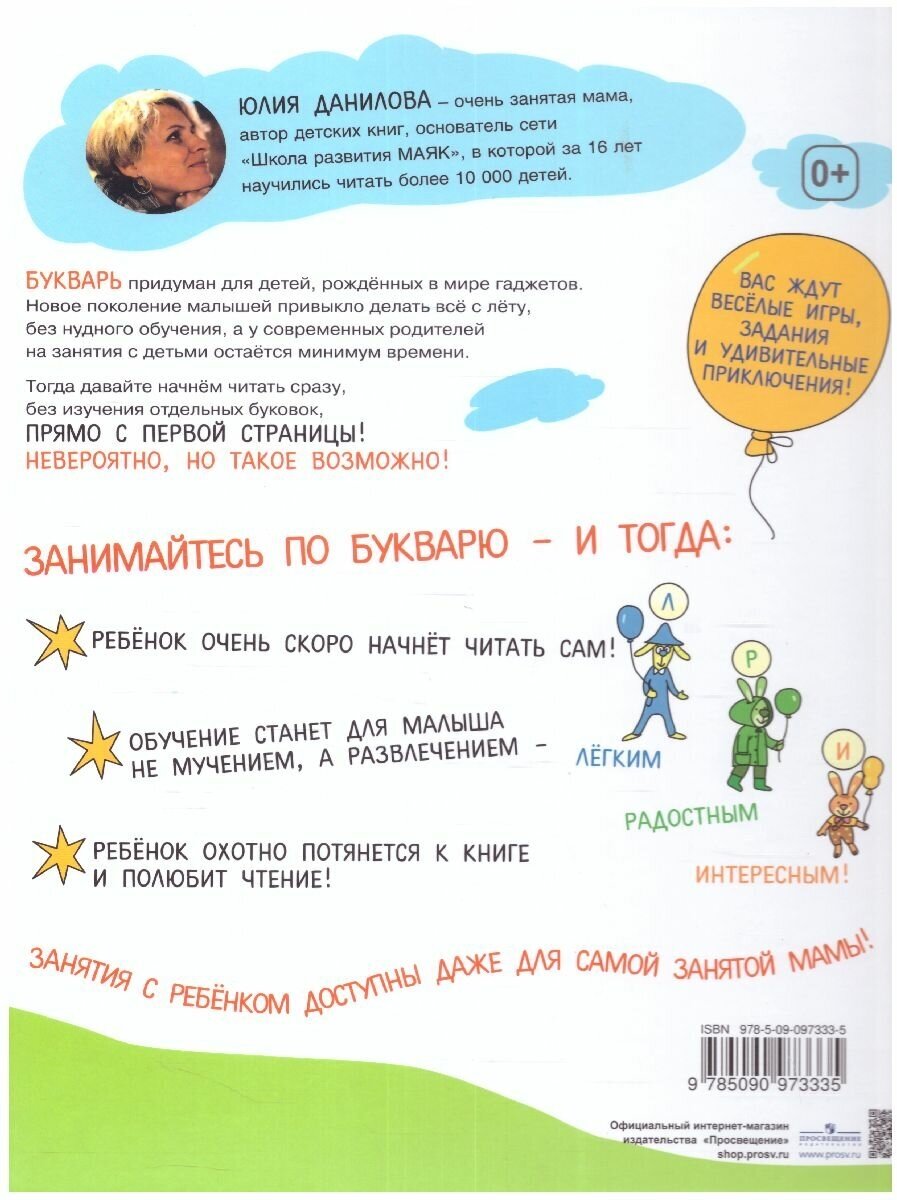 ЮЛИЯ ДАНИЛОВА – очень занятая мама,
автор детских книг, основатель сети
«Школа развития МАЯК», в которой за 16 лет
научились читать более 10 000 детей.
0+
БУКВАРЬ придуман для детей, рождённых в мире гаджетов.
Новое поколение малышей привыкло делать всё с лёту,
без нудного обучения, а у современных родителей
на занятия с детьми остаётся минимум времени.
ВАС ЖДУТ
ВЕСЁЛЫЕ ИГРЫ,
ЗАДАНИЯ
И УДИВИТЕЛЬНЫЕ
ПРИКЛЮЧЕНИЯ!
Тогда давайте начнём читать сразу,
без изучения отдельных буковок,
ПРЯМО С ПЕРВОЙ СТРАНИЦЫ!
НЕВЕРОЯТНО, НО ТАКОЕ ВОЗМОЖНО!
ЗАНИМАЙТЕСЬ ПО БУКВАРЮ – И ТОГДА:
РЕБЁНОК ОЧЕНЬ СКОРО НАЧНЁТ ЧИТАТЬ САМ!
ОБУЧЕНИЕ СТАНЕТ ДЛЯ МАЛЫША
НЕ МУЧЕНИЕМ, А РАЗВЛЕЧЕНИЕМ –
Л
ЛЁГКИМ
Р
РАДОСТНЫМ
И
ИНТЕРЕСНЫМ!
РЕБЁНОК ОХОТНО ПОТЯНЕТСЯ К КНИГЕ
И ПОЛЮБИТ ЧТЕНИЕ!
ЗАНЯТИЯ С РЕБЁНКОМ ДОСТУПНЫ ДАЖЕ ДЛЯ САМОЙ ЗАНЯТОЙ МАМЫ!
ISBN 978-5-09-097333-5
9 785090 973335
Официальный интернет-магазин
издательства «Просвещение»
shop.prosv.ru
ПРОСВЕЩЕНИЕ
ИЗДАТЕЛЬСТВО
www.prosv.ru